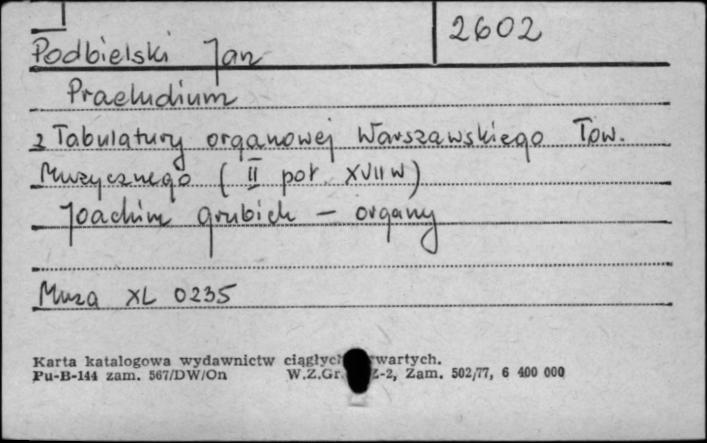 2602
Podbielski Jan
Praeludium
z Tabulatury organowej Warszawskiego Tow.
Muzycznego (II poł. XVII w)
Joachim Grubich – organy
Muza XL 0235
Karta katalogowa wydawnictw ciągłych wartych.
Pu-B-144 zam. 567/DW/On W.Z.Gr. Z-2, Zam. 502/77, 6 400 000